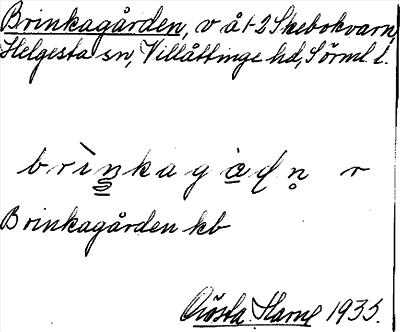 Brinkagården, v å 1-2 Skebokvarn,
Helgesta sn, Villåttinge hd, Sörml l.
brìnkagàḍn̥ r
Brinkagården kb
Gösta Harne 1935.